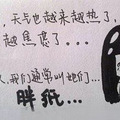 ，天气也越来越热了，
越焦虑了...
人，我们通常叫她们...
胖纸...